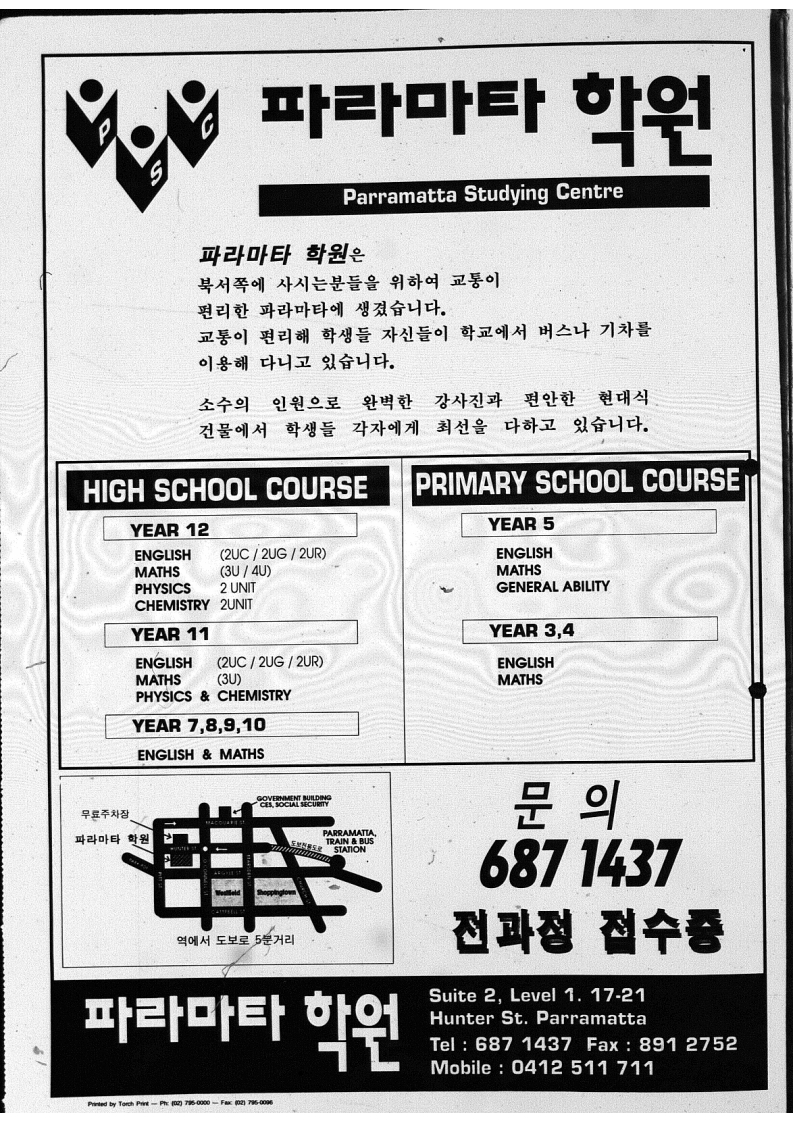 P S C
파라마타 학원
Parramatta Studying Centre
파라마타 학원은
북서쪽에 사시는분들을 위하여 교통이
편리한 파라마타에 생겼습니다.
교통이 편리해 학생들 자신들이 학교에서 버스나 기차를
이용해 다니고 있습니다.
소수의 인원으로 완벽한 강사진과 편안한 현대식
건물에서 학생들 각자에게 최선을 다하고 있습니다.
HIGH SCHOOL COURSE
YEAR 12
ENGLISH (2UC / 2UG / 2UR)
MATHS (3U / 4U)
PHYSICS 2 UNIT
CHEMISTRY 2UNIT
YEAR 11
ENGLISH (2UC / 2UG / 2UR)
MATHS (3U)
PHYSICS & CHEMISTRY
YEAR 7,8,9,10
ENGLISH & MATHS
PRIMARY SCHOOL COURSE
YEAR 5
ENGLISH
MATHS
GENERAL ABILITY
YEAR 3,4
ENGLISH
MATHS
GOVERNMENT BUILDING
CES, SOCIAL SECURITY
무료주차장
MACQUARIE ST
파라마타 학원
HUNTER ST
도보전용도로
PARRAMATTA,
TRAIN & BUS
STATION
ARGYLE ST
Westfield Shoppingtown
CAMPBELL ST
역에서 도보로 5분거리
문 의
687 1437
전과정 접수중
파라마타 학원
Suite 2, Level 1. 17-21
Hunter St. Parramatta
Tel : 687 1437 Fax : 891 2752
Mobile : 0412 511 711
Printed by Torch Print — Ph: (02) 795-0000 — Fax: (02) 795-0096